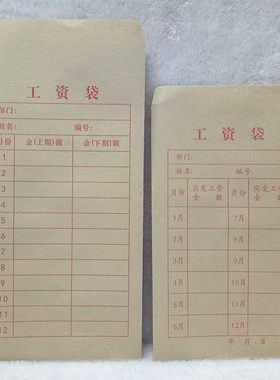 工资袋
部门:
姓名: 编号:
月份 金(上期)额 金(下期)额
1
2
3
4
5
6
7
8
9
10
11
12
工资袋
部门:
姓名: 编号:
月份 实发工资金额 月份 实发工资金额
1月 7月
2月 8月
3月 9月
4月 10月
5月 11月
6月 12月
年 月 日